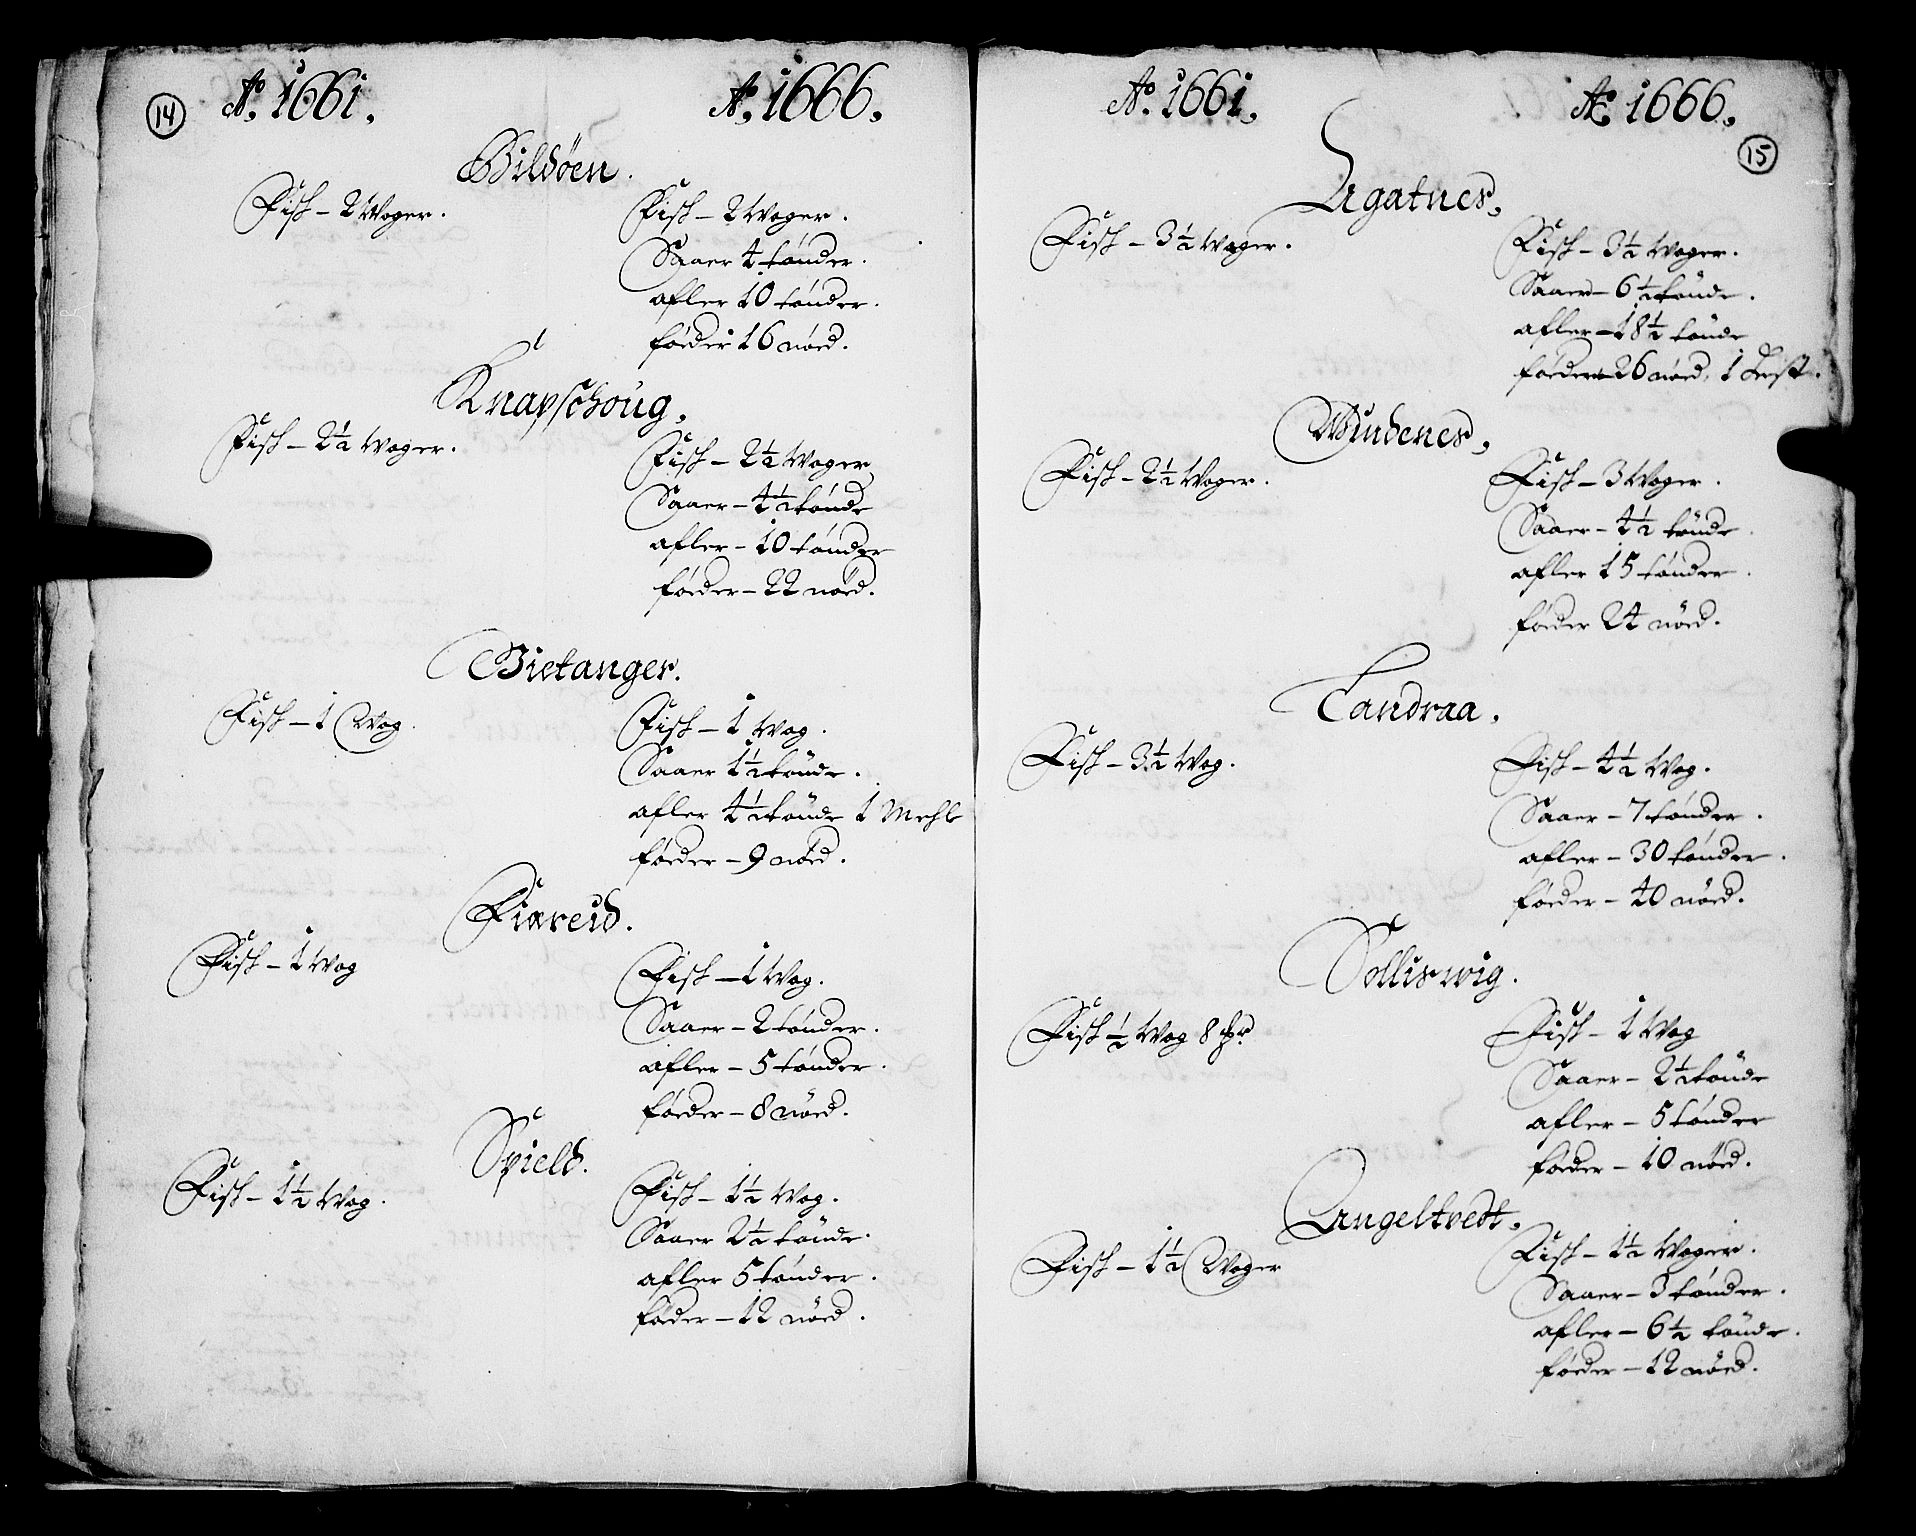 14
Ao. 1661. Ao. 1666.
Bildöen.
Fisk – 2 Woger. Fisk – 2 Woger.
Saaer 4 tønder.
afler 10 tønder.
føeder 16 nöed.
Knapschoug.
Fisk – 2½ Woger. Fisk – 2½ Woger
Saaer – 4½ tönde
afler – 10 tønder
føeder – 22 nöed.
Bietanger.
Fisk – 1 Wog. Fisk – 1 Wog.
Saaer 1½ tönde.
afler 4½ tönde 1 Mehle
føeder – 9 nöed.
Fiæreid.
Fisk – 1 Wog Fisk – 1 Wog.
Saaer – 2 tønder.
afler – 5 tønder.
føeder – 8 nöed.
Spield.
Fisk – 1½ Wog. Fisk – 1½ Wog.
Saaer 2½ tönde.
afler 5 tønder.
föder – 12 nöed.
15
Ao. 1661. Ao 1666.
Agatnes.
Fisk – 3½ Woger. Fisk – 3½ Woger.
Saaer – 6½ tönde.
afler – 18½ tönde
føeder – 26 nöed, 1 Hest.
Windenes.
Fisk – 2½ Woger. Fisk – 3 Woger.
Saaer – 4½ tönde.
afler 15 tønder.
føeder 24 nöed.
Tandraa.
Fisk – 3½ Wog. Fisk – 4½ Wog.
Saaer – 7 tønder.
afler – 30 tønder.
føeder – 40 nöed.
Solliswig.
Fisk ½ Wog 8 Fisk – 1 Wog
Saaer – 2½ tönde
afler – 5 tønder
føeder – 10 nöed.
Angeltvedt.
Fisk – 1½ Woger Fisk – 1½ Woger.
Saaer – 3 tønder.
afler – 6½ tönde.
føeder – 12 nöed.